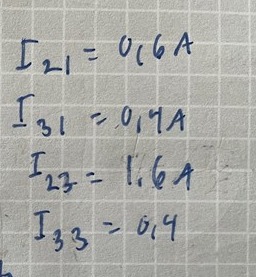 I₂₁ = 0,6A
I₃₁ = 0,4A
I₂₃ = 1.6A
I₃₃ = 0,4